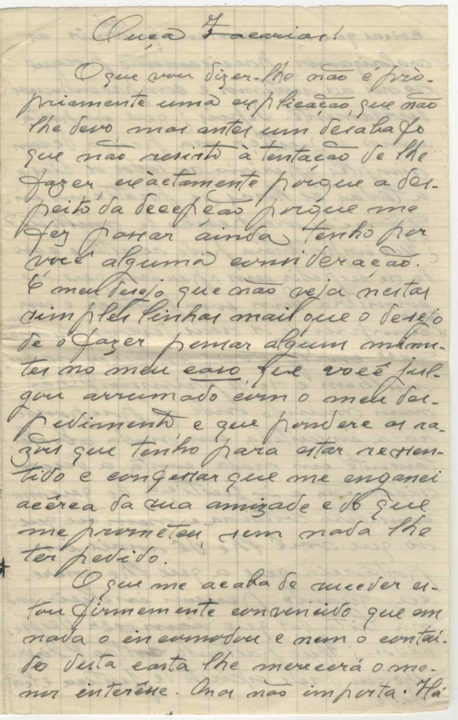 Ouça Zacarias!
O que vou dizer-lhe não é prò-
priamente uma explicação, que não
lhe devo, mas antes um desabafo
que não resisto à tentação de lhe
fazer, exàctamente porque a des-
peito da decepção porque me
fez passar ainda tenho por
você alguma consideração.
É meu desejo, que não veja nestas
simples linhas mais que o desejo
de o fazer pensar alguns minu-
tes no meu caso, que você jul-
gou arrumado com o meu des-
pedimento, e que pondere as ra-
zões que tenho para estar ressen-
tido e confessar que me enganei
acêrca da sua amizade e do que
me prometeu, sem nada lhe
ter pedido.
O que me acaba de suceder es-
tou firmemente convencido que em
nada o incomodou e nem o conteú-
do desta carta lhe merecerá o me-
nor interêsse. Mas não importa. Há